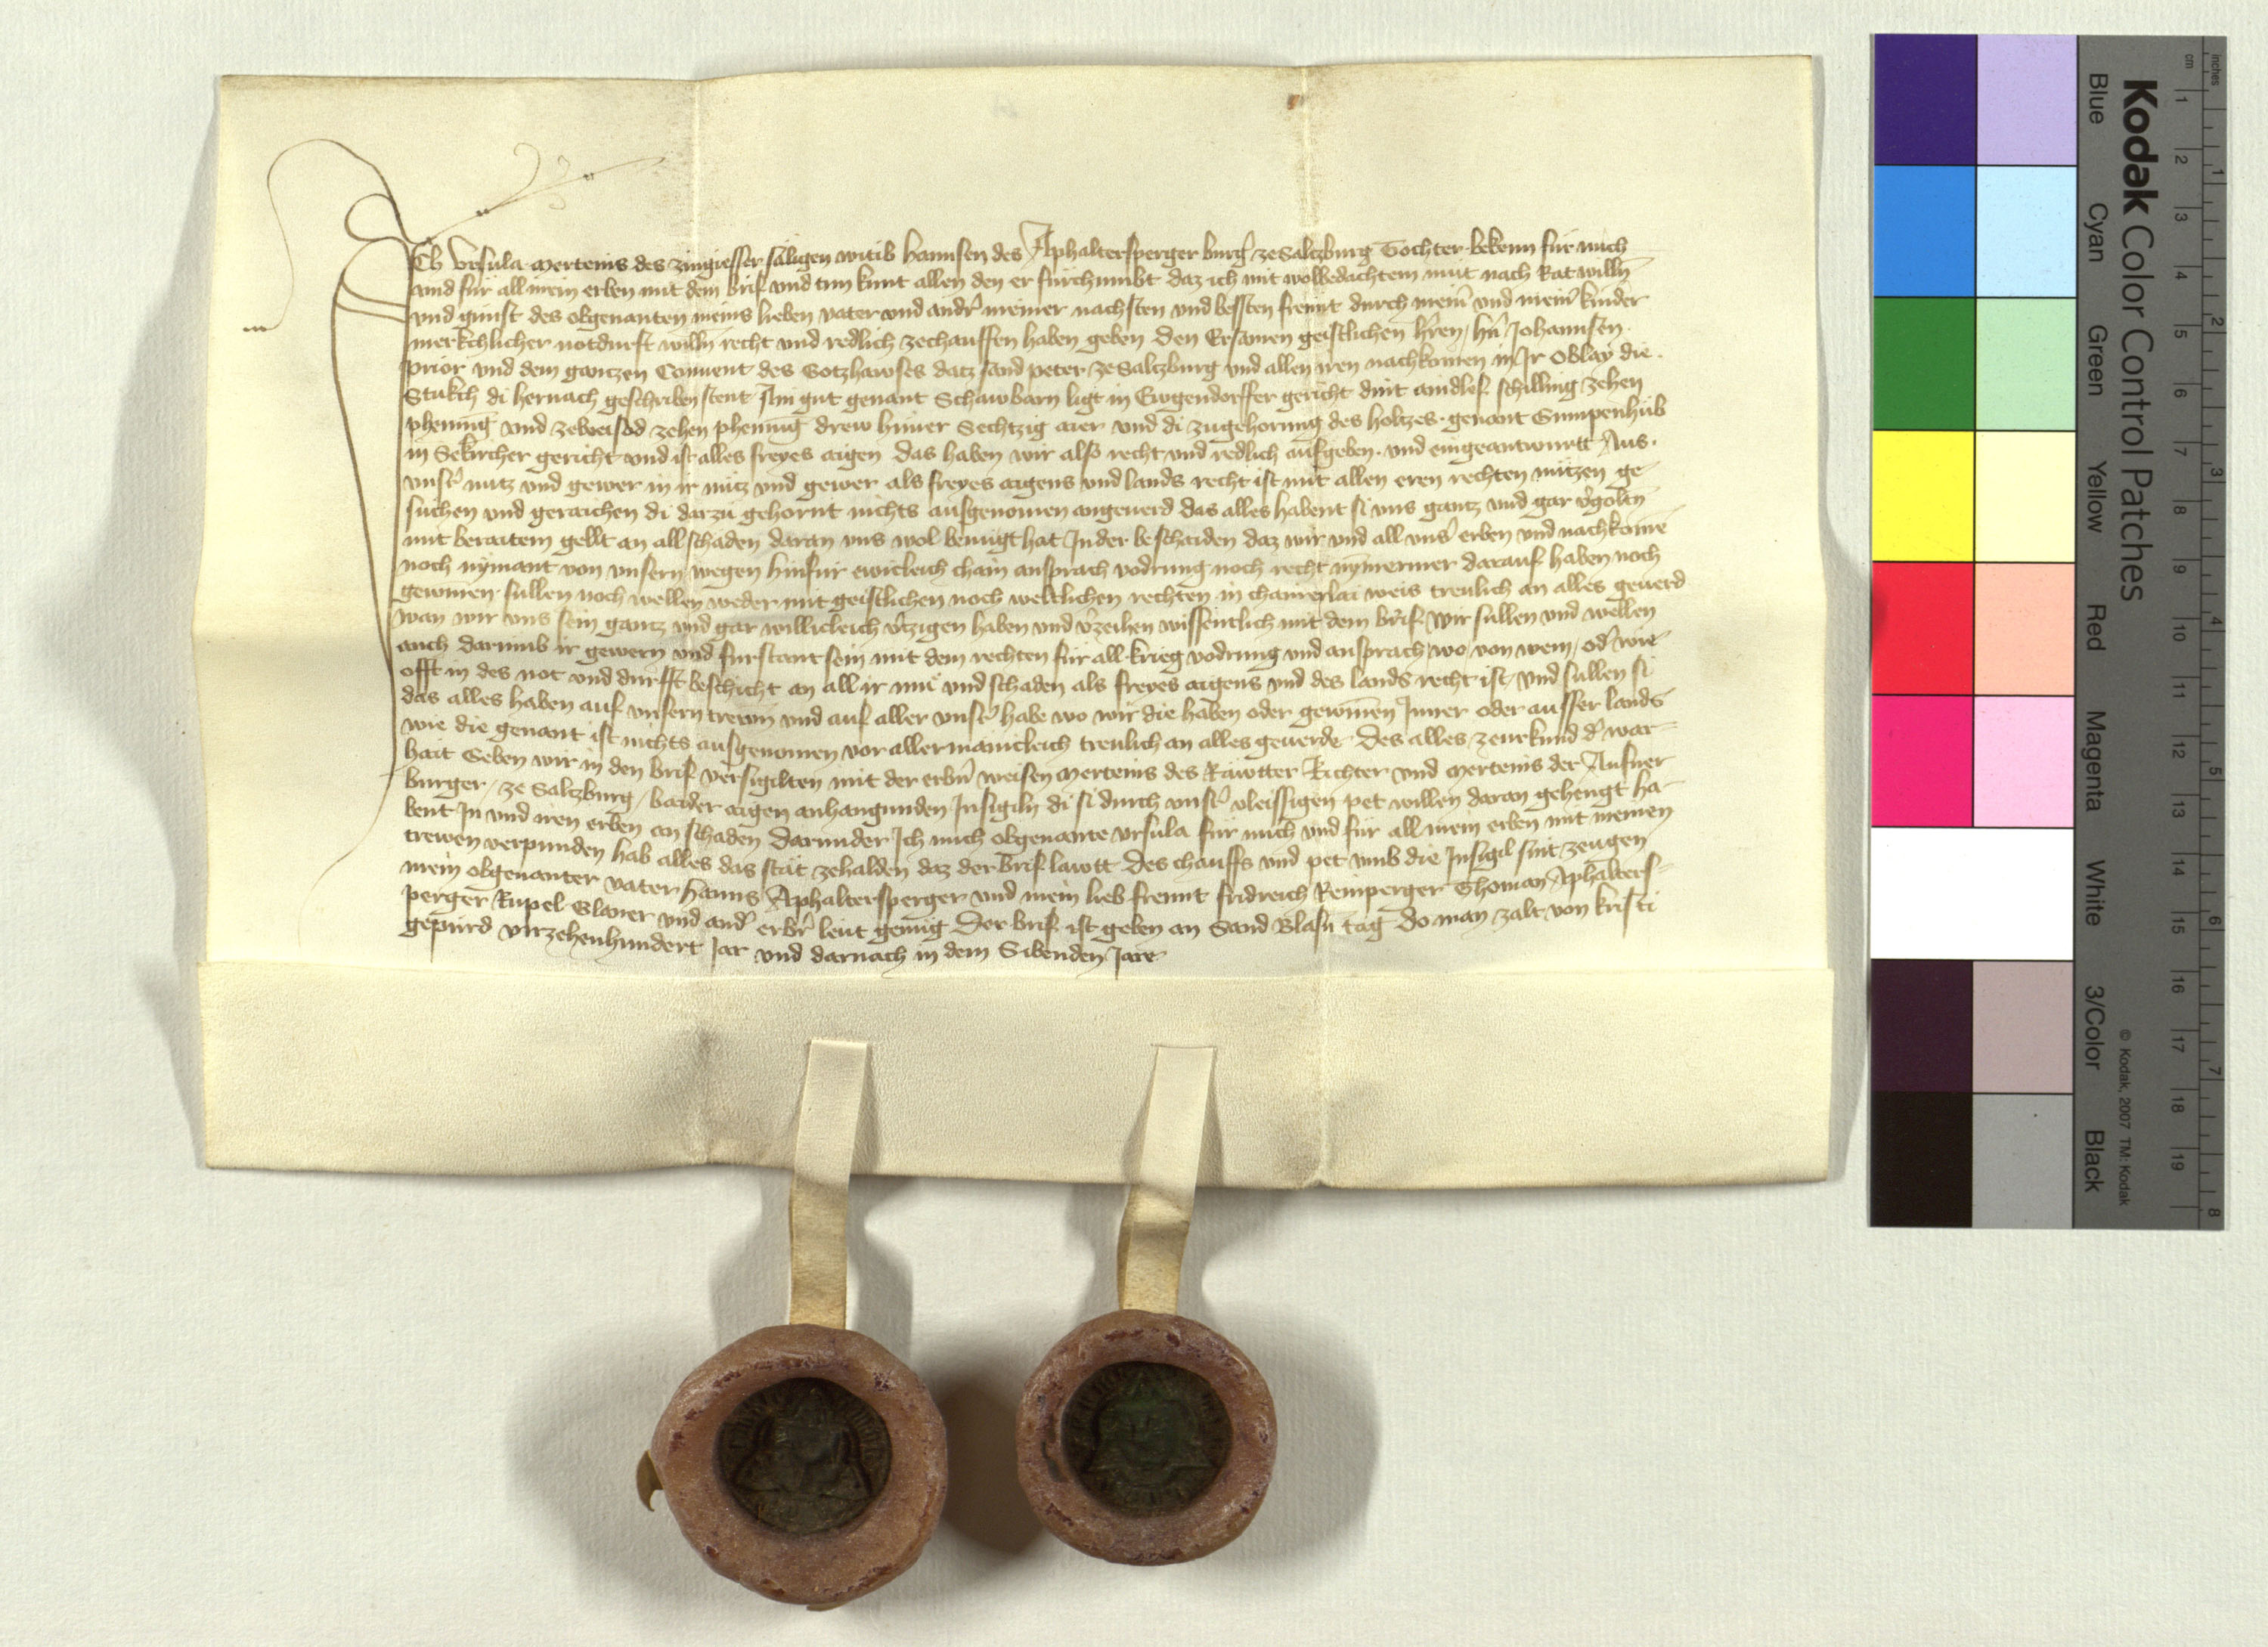 Ich Ursula Mertenis des zingiesser säligen witib Hannsen des Aphaltersperger burgˀ ze Saltzburg Tochter bekenn für mich
und für all mein erben mit dem brif und tun kunt allen den er fürchumbt daz ich mit wolbedachtem mut nach Rat willn̄
und gunst des obgenanten meins lieben vater und andrˀ meiner nachsten und bessten freunt durch meinˀ und meinˀ kinder
merkchlicher notdurft willn̄ recht und redlich zechauffen haben geben den Ersamen geistlichen hˀren / hnˀ Johannsen
prior und dem gantzen Convent des Gotzhawses datz sand peter ze Saltzburg und allen iren nachkomen in Ir Oblay die
Stukch di hernach geschriben stent Ain gut genant Schawbarn ligt in Eugendorffer gericht dint aindlef schilling zehen
phening und zeweisod zehen phening drew huner Sechtzig air und di zugehorung des holtzes genant Gumpenhub
in Sekircher gericht und ist alles freyes aigen das haben wir also recht und redlich aufgeben und eingeantwurtt Aus
unsˀ nutz und gewer in ir nutz und gewer als freyes aigens und lands recht ist mit allen eren rechten nutzen ge-
suchen und geraichen di darzu gehornt nichts ausgenomen angeuerd das alles habent si uns gantz und gar vˀgoltn̄
mit beraitem gellt an all schaden daran uns wol benügt hat In der beschaiden daz wir und all unsˀ erben und nachkome
noch nymant von unsern wegen hinfür ewicleich chain ansprach vodrung noch recht nymermer darauf haben noch
gewinen süllen noch wellen weder mit geistlichen noch weltlichen rechten in chainerlai weis treulich an alles geuerd
wan wir uns sein gantz und gar willicleich vˀtzigen haben und vˀzeihen wissentlich mit dem brif Wir sullen und wellen
auch darumb ir gewern und furstant sein mit dem rechten für all krieg vodrung und ansprach / wo / von wem / odˀ wie
offt in des not und durfft beschicht an all ir mue und schaden als freyes aigens und des lands recht ist / und sullen si
das alles haben auf unsern trewn̄ und auf aller unsˀ habe wo wir die haben oder gewinnen Inner oder ausser lands
wie die genant ist nichts ausgenomen vor allermanicleich treulich an alles geuerde Des alles zeurkund dˀ war-
hait Geben wir in den brif versigilten mit der erbn̄ weisen Mertenis des Rawtter Richter und Mertenis der Aufner
burger / ze Saltzburg / baider aigen anhangunden Insigiln di si durch unsˀ vleissigen pet willen daran gehengt ha-
bent In und iren erben an schaden Darunder Ich mich obgenante Ursula für mich und für all mein erben mit meinen
trewen verpunden hab alles das stät zehalden daz der brif lawtt Des chauffs und pet umb die Insigil sint zeugen
mein obgenanter vater Hanns Aphaltersperger und mein lieb freunt fridreich Reinperger Thoman Aphalters-
perger Rupel Glaner und andˀ erbrˀ leut genüg Der brif ist geben an Sand Blasn̄ tag Do man zalt von kristi
gepürd virzehenhundert Jar und darnach in dem Sibenden Jare
Kodak Color Control Patches
Blue Cyan Green Yellow Red Magenta White 3/Color Black
© Kodak, 2007 TM: Kodak
inches 1 2 3 4 5 6 7 8
cm 1 2 3 4 5 6 7 8 9 10 11 12 13 14 15 16 17 18 19